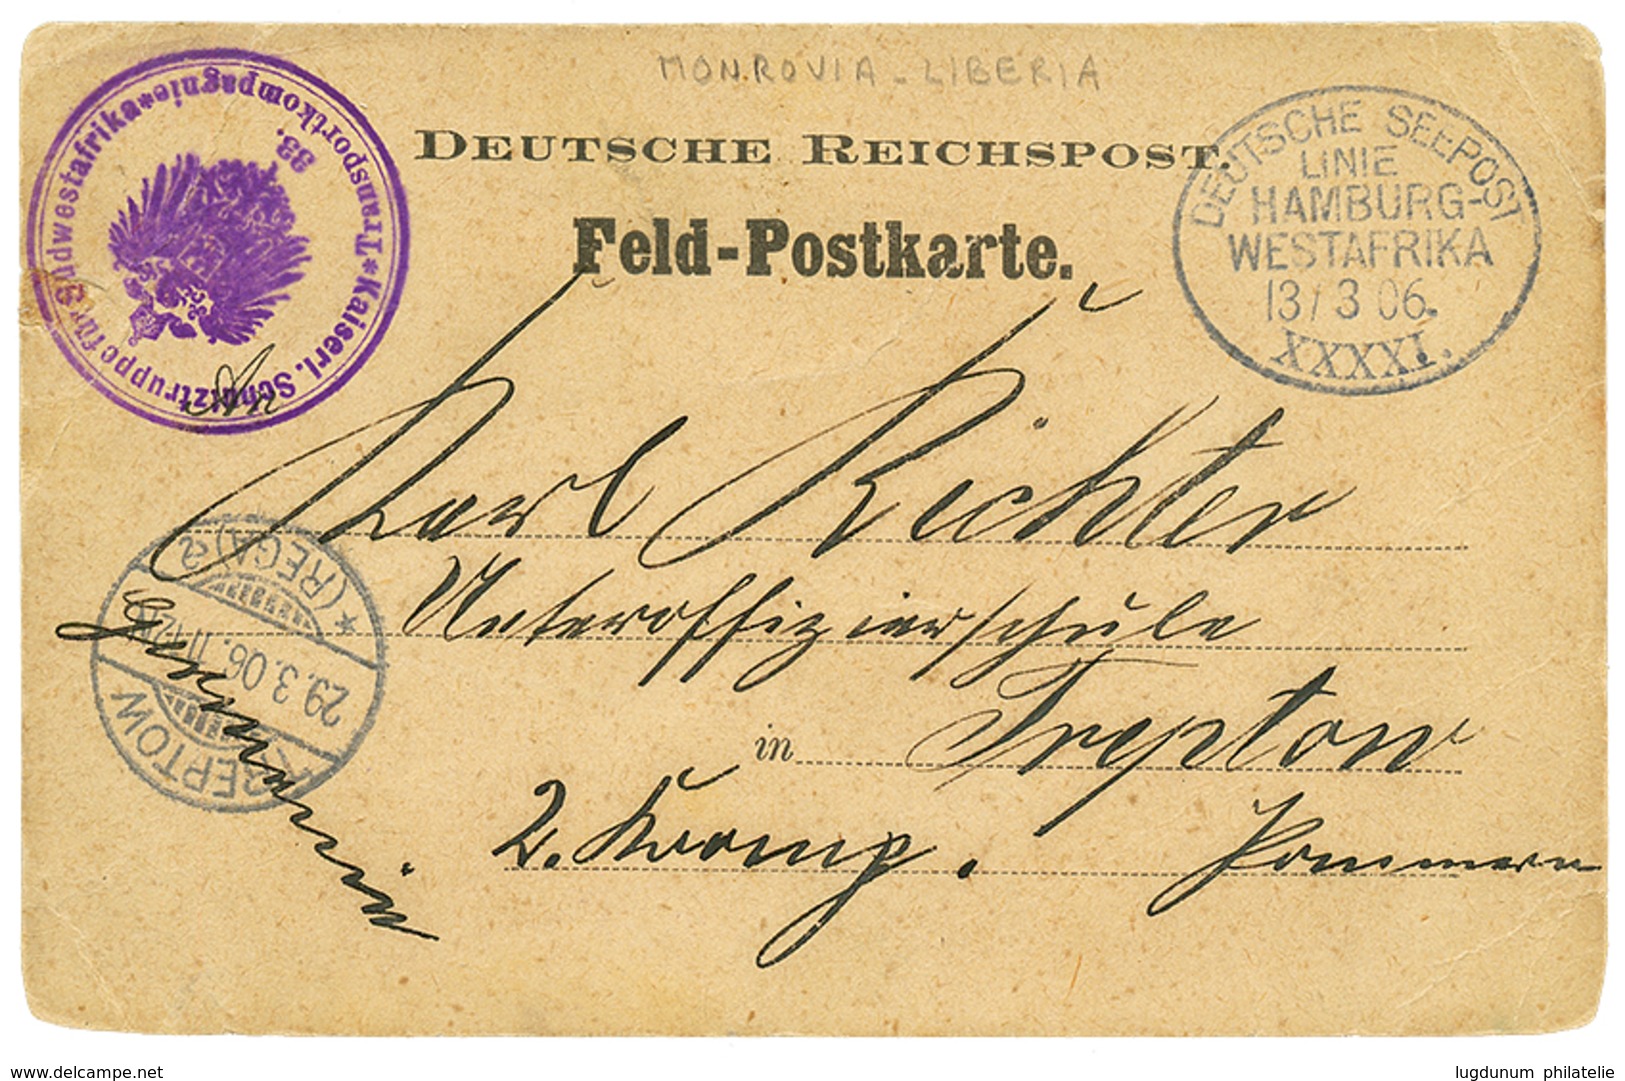 MONROVIA - LIBERIA
DEUTSCHE REICHSPOST.
Feld-Postkarte.
Kaiserl. Schutztruppe für Südwestafrika * 33. Transportkompagnie *
DEUTSCHE SEEPOST
LINIE
HAMBURG-
WESTAFRIKA
13/3 06.
XXXXI.
An
Karl Richter
Unteroffizierschule
in Treptow
2. Komp. Pommern
TREPTOW
29.3.06.11-12V.
* (REGA) a
Germania
delcampe.net
lugdunum philatelie